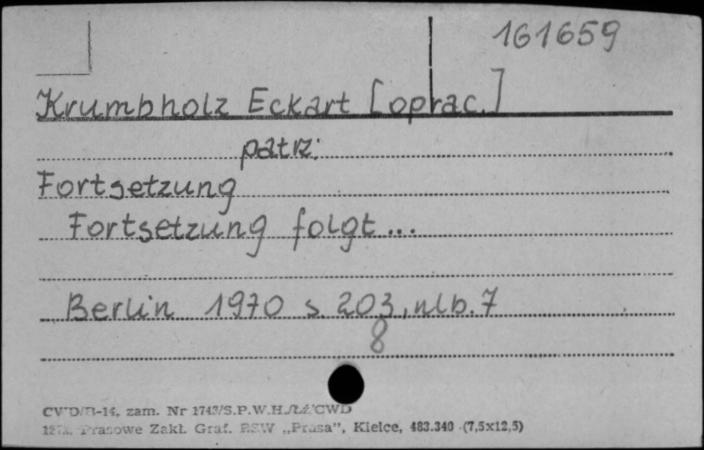 161659
Krumbholz Eckart [oprac.]
patrz:
Fortsetzung
Fortsetzung folgt...
Berlin 1970 s. 203, nlb. 7
8
zam. Nr 1743/S.P.W.H. CWD
Prasowe Zakł. Graf. RSW „Prasa", Kielce, 483.340 (7,5x12,5)